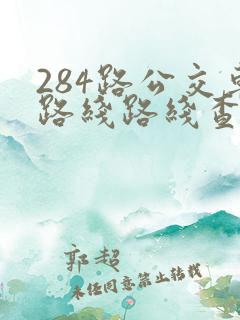 284路公交车
路线路线查
郭超
未经同意禁止转载